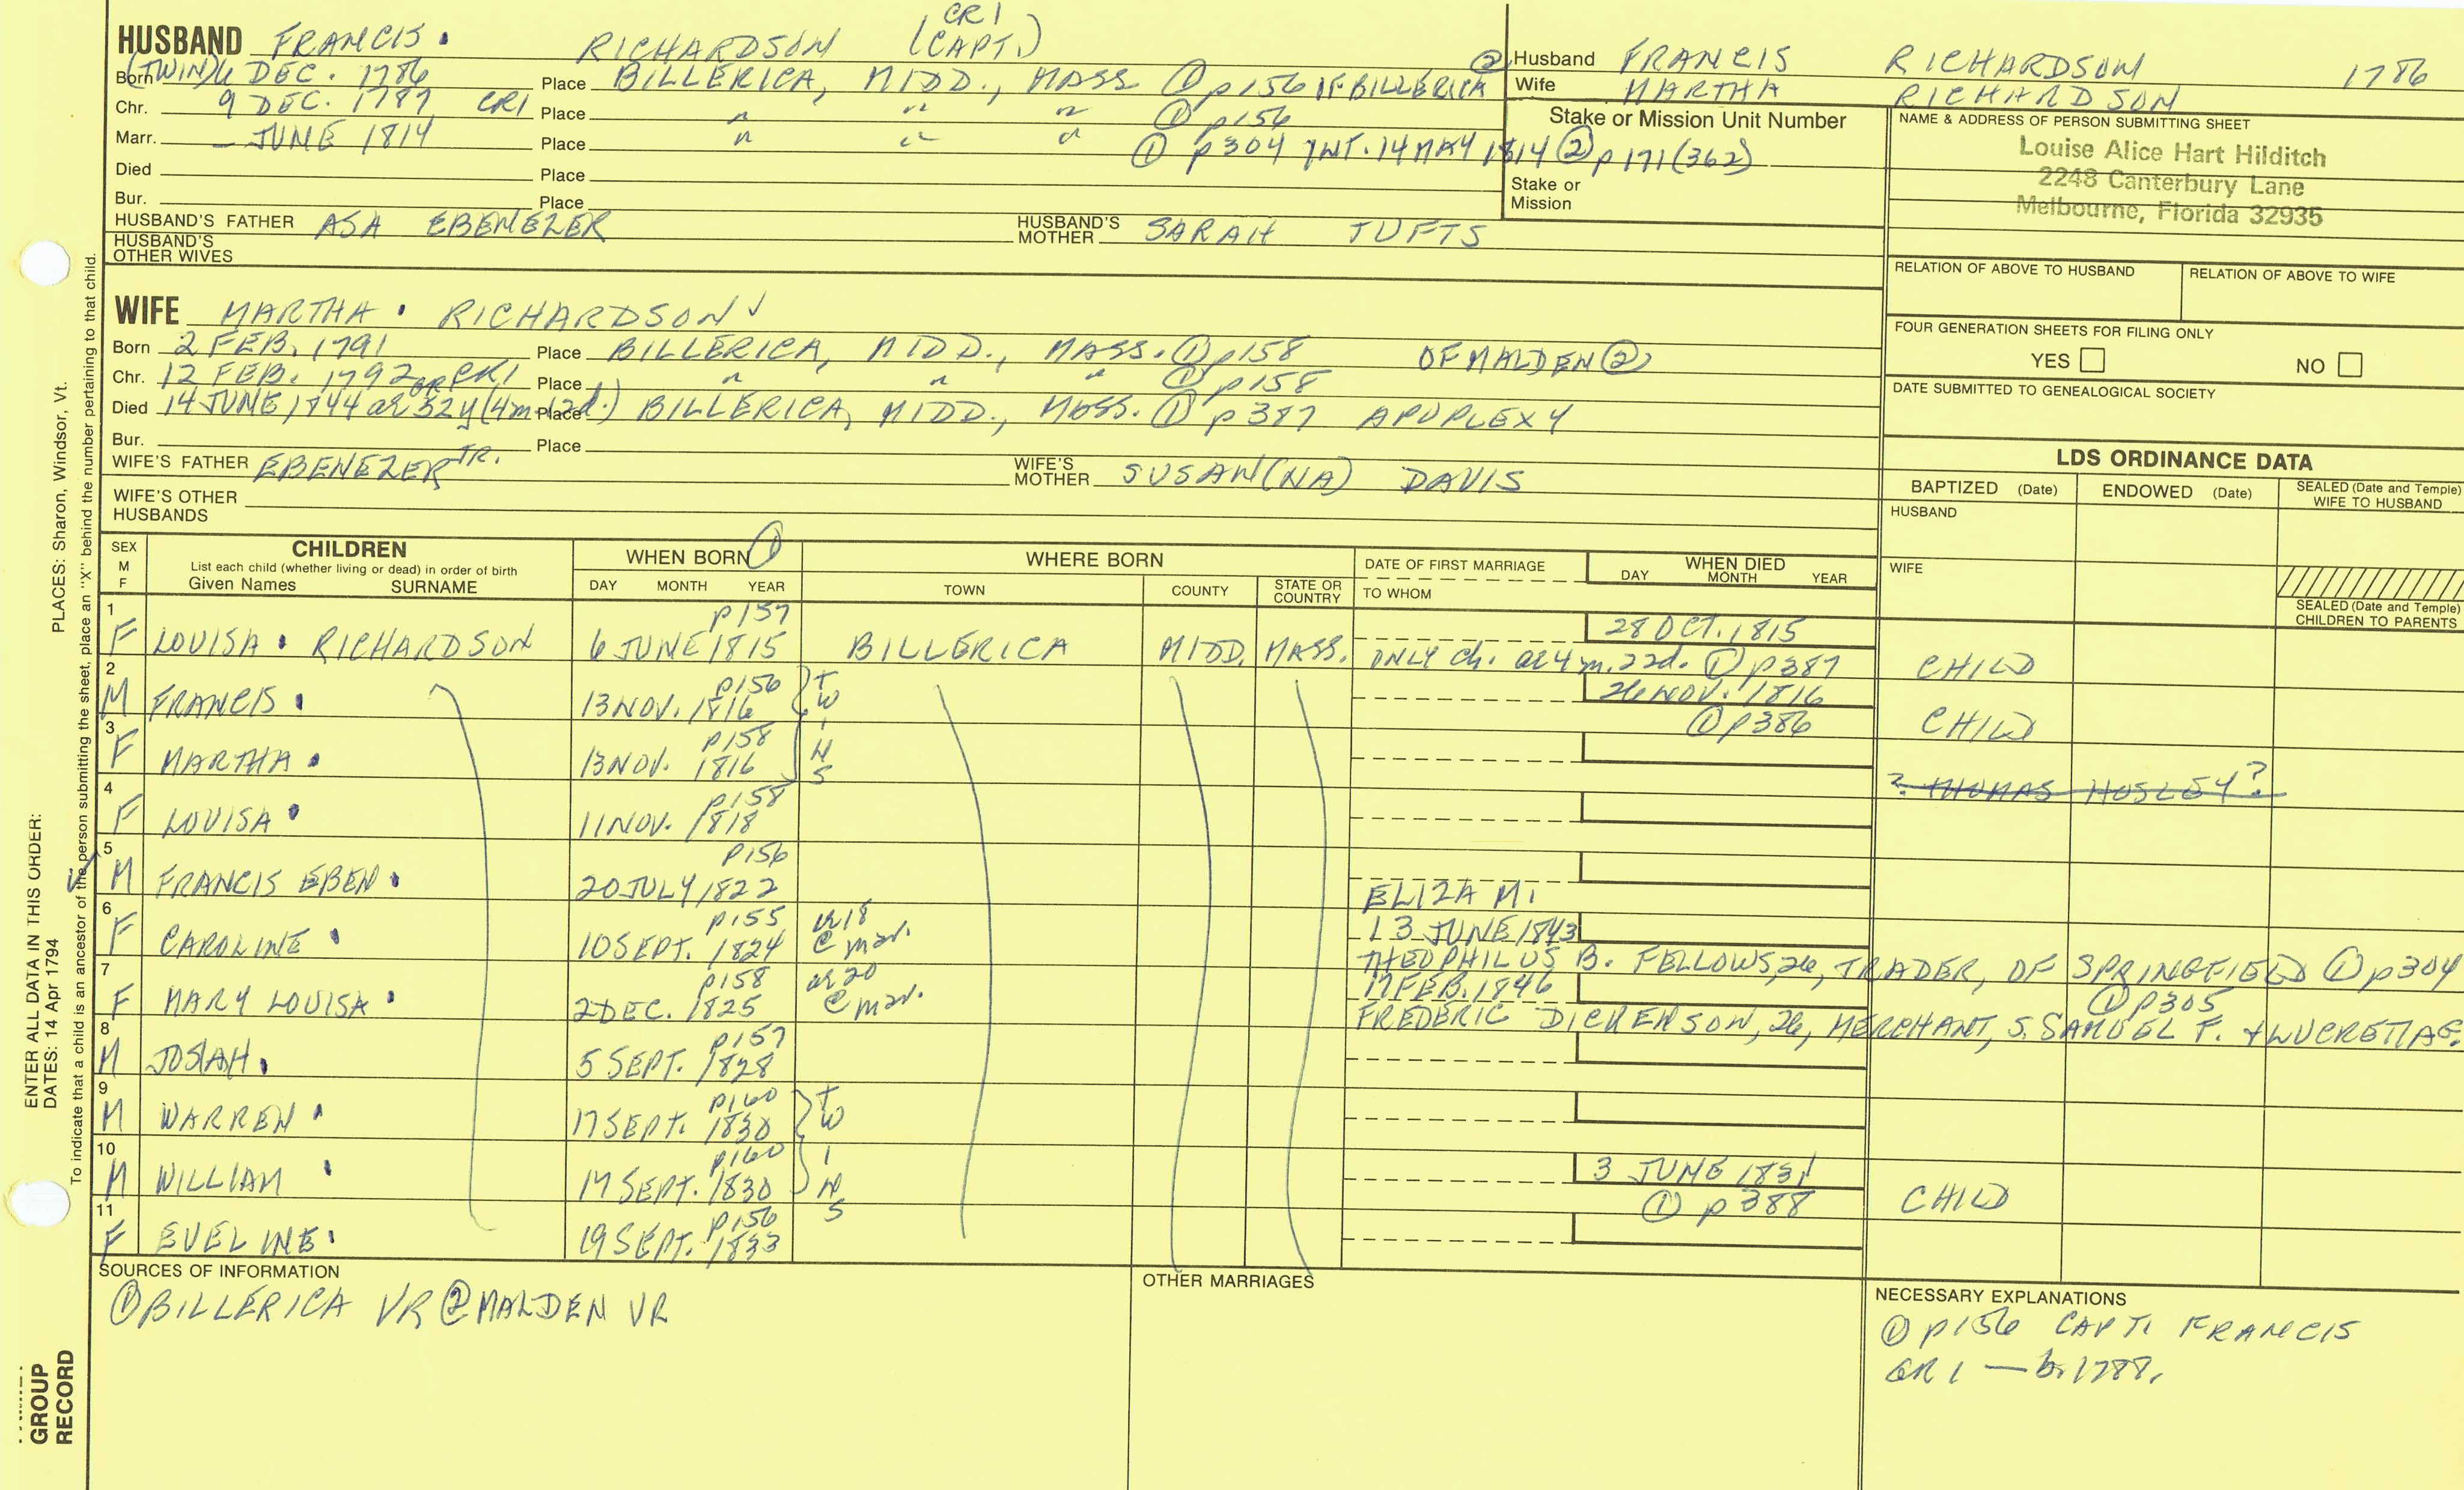 HUSBAND FRANCIS. RICHARDSON (CAPT.) CR1
Born (TWIN) 4 DEC. 1786 Place BILLERICA, MIDD., MASS ① p156 OF BILLERICA ②
Chr. 9 DEC. 1787 CR1 Place " " " ① p156
Marr. _ JUNE 1814 Place " " " ① p304 INT. 14 MAY 1814 ② p171 (362)
Died Place
Bur. Place
HUSBAND'S FATHER ASA EBENEZER HUSBAND'S MOTHER SARAH TUFTS
HUSBAND'S OTHER WIVES
Husband FRANCIS RICHARDSON 1786
Wife MARTHA RICHARDSON
Stake or Mission Unit Number
Stake or Mission
NAME & ADDRESS OF PERSON SUBMITTING SHEET
Louise Alice Hart Hilditch
2248 Canterbury Lane
Melbourne, Florida 32935
RELATION OF ABOVE TO HUSBAND RELATION OF ABOVE TO WIFE
FOUR GENERATION SHEETS FOR FILING ONLY
YES NO
DATE SUBMITTED TO GENEALOGICAL SOCIETY
WIFE MARTHA . RICHARDSON ✓
Born 2 FEB. 1791 Place BILLERICA, MIDD., MASS. ① p158 OF MALDEN ②
Chr. 12 FEB. 1792 CR1 Place " " " ① p158
Died 14 JUNE, 1844 ae 52y (4m. 12d.) Place BILLERICA, MIDD., MASS. ① p387 APOPLEXY
Bur. Place
WIFE'S FATHER EBENEZER JR. WIFE'S MOTHER SUSAN(NA) DAVIS
WIFE'S OTHER HUSBANDS
LDS ORDINANCE DATA
BAPTIZED (Date) ENDOWED (Date) SEALED (Date and Temple) WIFE TO HUSBAND
HUSBAND
WIFE
SEALED (Date and Temple) CHILDREN TO PARENTS
SEX M F
CHILDREN
List each child (whether living or dead) in order of birth
Given Names SURNAME
WHEN BORN ①
DAY MONTH YEAR
WHERE BORN
TOWN COUNTY STATE OR COUNTRY
DATE OF FIRST MARRIAGE
TO WHOM
WHEN DIED
DAY MONTH YEAR
1 F LOUISA . RICHARDSON p157 6 JUNE 1815 BILLERICA MIDD. MASS. 28 OCT. 1815
ONLY ch. ae 4 m. 22d. ① p387 CHILD
2 M FRANCIS . p156 13 NOV. 1816 TWINS 26 NOV. 1816
① p386 CHILD
3 F MARTHA . p158 13 NOV. 1816 ? THOMAS HOSLEY?
4 F LOUISA . p158 11 NOV. 1818
5 M FRANCIS EBEN . p156 20 JULY 1822 ELIZA M.
6 F CAROLINE . p155 10 SEPT. 1824 ae 18 @ mar. 13 JUNE 1843
THEOPHILUS B. FELLOWS, 26, TRADER, OF SPRINGFIELD ① p304
7 F MARY LOUISA . p158 2 DEC. 1825 ae 20 @ mar. 17 FEB. 1846 ① p305
FREDERIC DICKENSON, 26, MERCHANT, S. SAMUEL F. & LUCRETIA G.
8 M JOSIAH . p157 5 SEPT. 1828
9 M WARREN . p160 17 SEPT. 1830 TWINS
10 M WILLIAM . p160 17 SEPT. 1830 3 JUNE 1831
① p388 CHILD
11 F EVELINE . p156 19 SEPT. 1833
SOURCES OF INFORMATION
① BILLERICA VR ② MALDEN VR
OTHER MARRIAGES
NECESSARY EXPLANATIONS
① p156 CAPT. FRANCIS
GR 1 — b. 1788.
PLACES: Sharon, Windsor, Vt.
ENTER ALL DATA IN THIS ORDER:
DATES: 14 Apr 1794
To indicate that a child is an ancestor of the person submitting the sheet, place an "X" behind the number pertaining to that child.
GROUP
RECORD